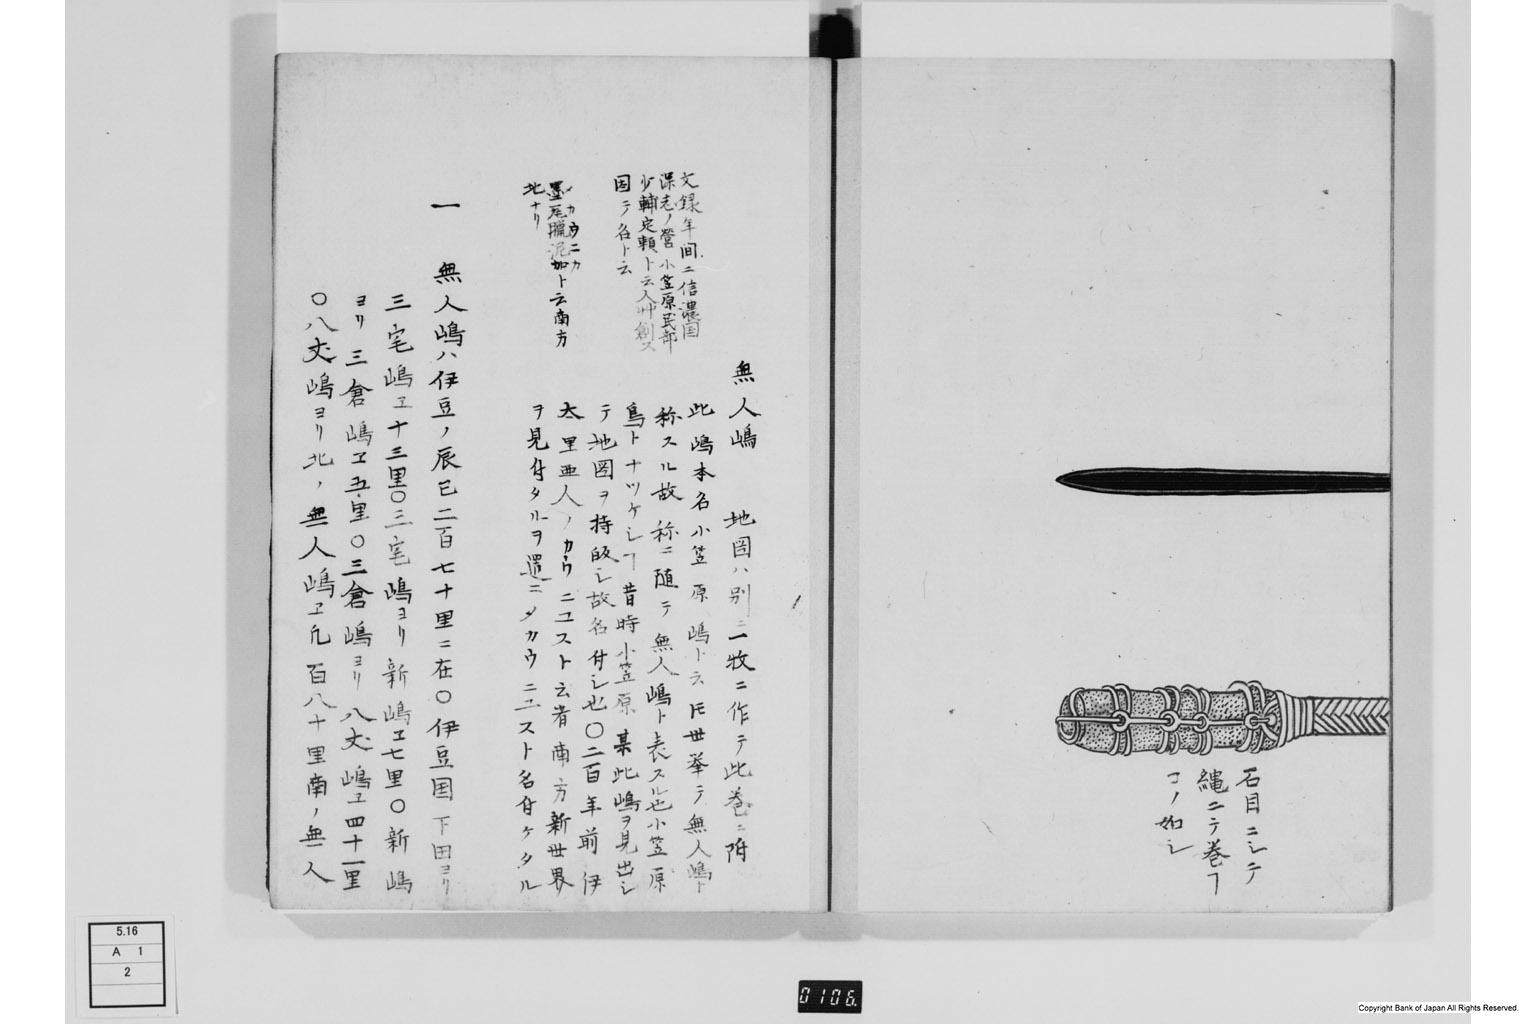 石目ニシテ
縄ニテ巻ヿ
コノ如シ
無人嶋　地図ハ別ニ一牧ニ作テ此巻ニ附
此嶋本名小笠原嶋ト云ㇳモ世挙テ無人嶋ト
称スル故称ニ随テ無人嶋ト表スル也小笠原
島トナツケシヿ昔時小笠原某此嶋ヲ見出シ
テ地図ヲ持皈シ故名付シ也〇二百年前伊
太里亜人ノカウニユスト云者南方新世界
ヲ見付タルヲ還ニメカウニユスト名付ケタル
文録年间ニ信濃国
深志ノ営小笠原民部
少輔定頼ト云人艸創ス
因テ名ト云
メカウニカ
墨瓦臘泥加ト云南方
北ナリ
一　無人嶋ハ伊豆ノ辰巳二百七十里ニ在〇伊豆国下田ヨリ
三宅嶋エ十三里〇三宅嶋ヨリ新嶋エ七里〇新嶋
ヨリ三倉嶋エ五里〇三倉嶋ヨリ八丈嶋エ四十一里
〇八丈嶋ヨリ北ノ無人嶋エ凡百八十里南ノ無人
5.16
A 1
2
0106.
Copyright Bank of Japan All Rights Reserved.